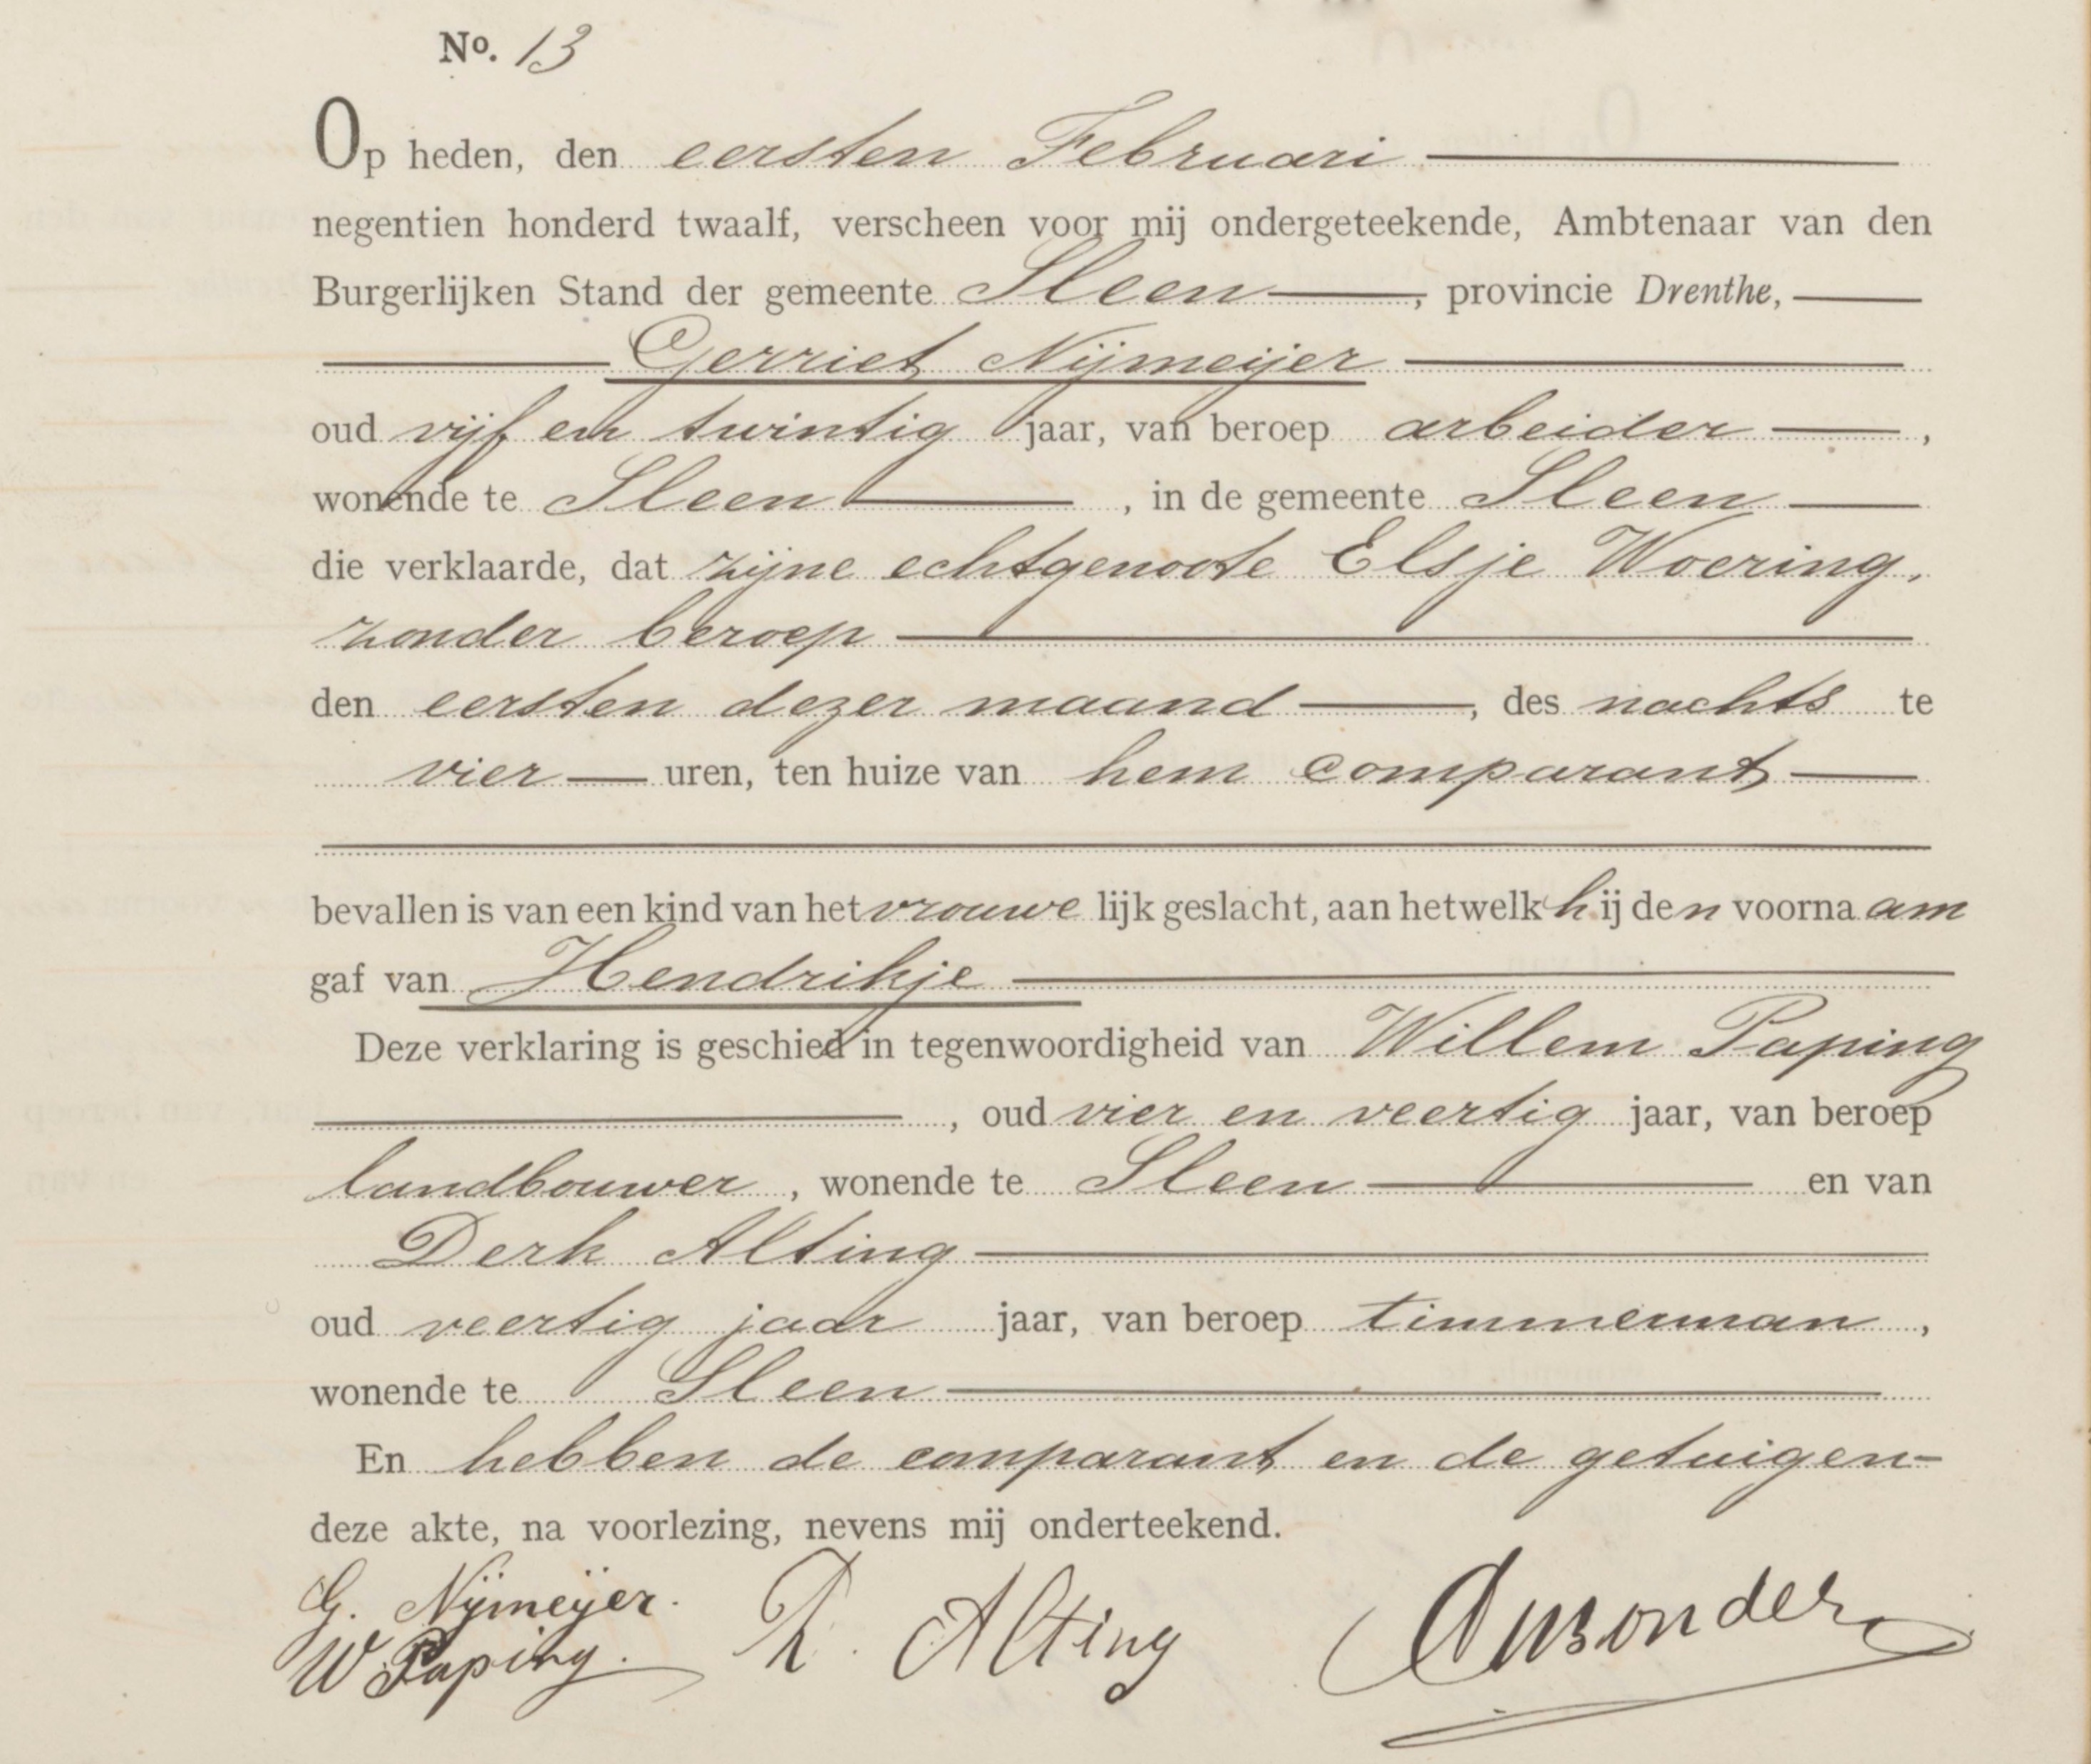 No. 13
Op heden, den eersten Februari
negentien honderd twaalf, verscheen voor mij ondergeteekende, Ambtenaar van den
Burgerlijken Stand der gemeente Sleen, provincie Drenthe,
Gerriet Nijmeijer
oud vijf en twintig jaar, van beroep arbeider,
wonende te Sleen, in de gemeente Sleen
die verklaarde, dat zijne echtgenoote Elsje Woering,
zonder beroep
den eersten dezer maand, des nachts te
vier uren, ten huize van hem comparant
bevallen is van een kind van het vrouwelijk geslacht, aan hetwelk hij den voornaam
gaf van Hendrikje
Deze verklaring is geschied in tegenwoordigheid van Willem Paping
, oud vier en veertig jaar, van beroep
landbouwer, wonende te Sleen en van
Derk Alting
oud veertig jaar jaar, van beroep timmerman,
wonende te Sleen
En hebben de comparant en de getuigen
deze akte, na voorlezing, nevens mij onderteekend.
G. Nijmeijer.
W Paping. D. Alting